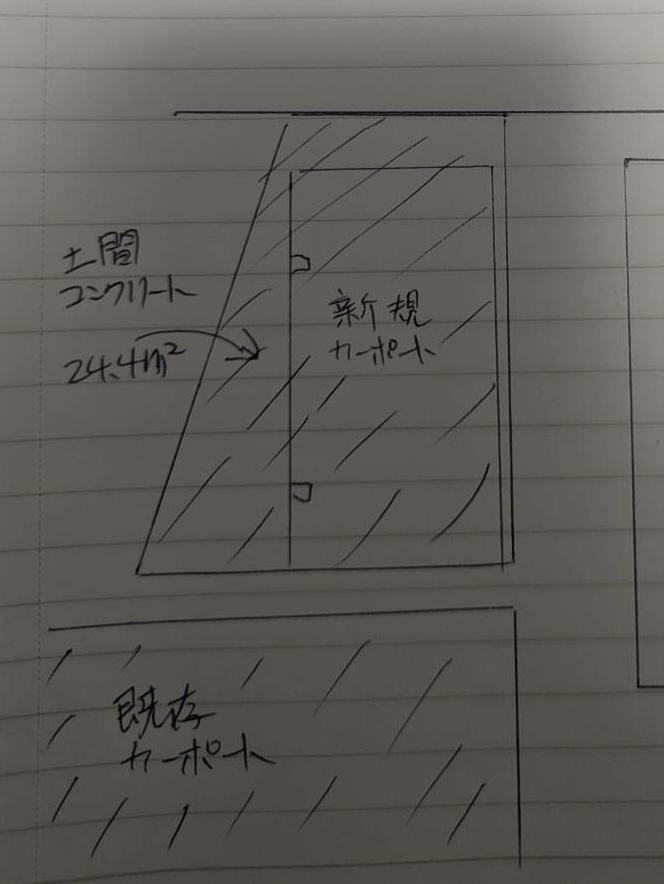 土間
コンクリート
24.4m²
新規
カーポート
既存
カーポート